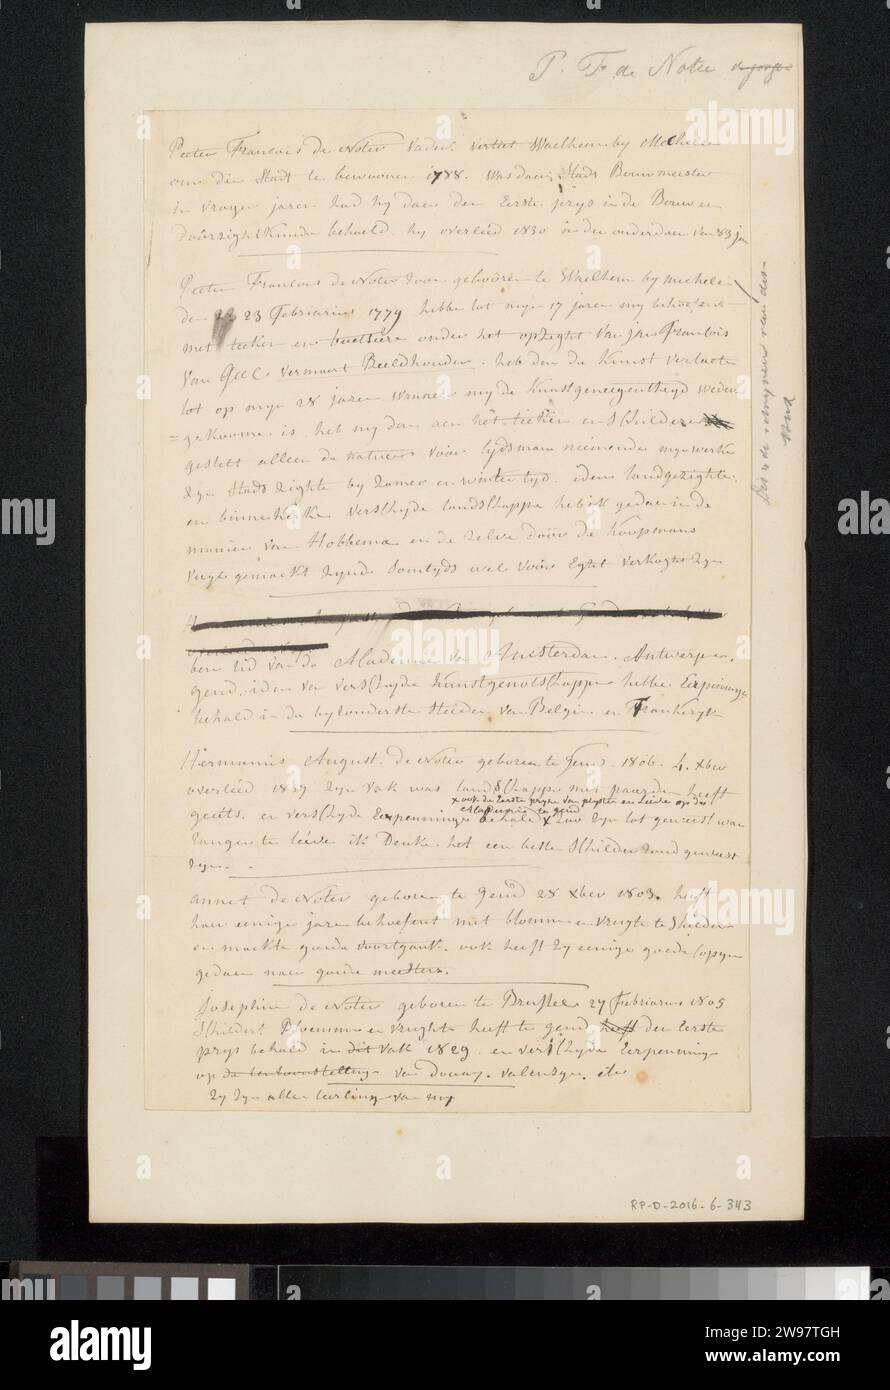 P. F. de Noter
Peeter Francois de Noter Vader. Waelhem by Mechelen
om die Stadt te bewoonen 1788. was daer Stads Bouwmeester
in vroger jaren had hy daer den Eerste prys in de Bouw en
behaeld. hy overleed 1830 in den ouderdom van 83 jar
Peeter Francois de Noter Zoon gebooren te Waelhem by Mechelen
den 23 Febriarius 1779 hebbe tot myn 17 jaren my
met teeken en onder het opzight van jan Francois
Van Geel vermaert Beeldhouder. heb den de Kunst verlaeten
tot op myn 28 jaren wanneer my de Kunstgeneigentheyd weder
=gekoomen is. heb my dan aen het teeken en Schilderen
gestelt alleen de natuer voor lydsman neemende myn werke
zyn Stads Zighte by Zomer en winter tyd. idem landgezighte
en binne Kerke verschyde landschappe heb ik gedaen in de
manier van Hobbema en de zelve door de Koopmans
gemaekt zynde somtyds wel voor Eght verkoght zyn
ben lid van de Academie van Amsterdam. Antwerpen.
gend. idem van verschyde Kunstgenotschappe hebbe Eerpenninge
behald in de byzonderste steeden van Belgie en Frankeryk
Hermanis August. de Noter geboren te Gend. 1806. 4. xber
overleed 1837 zyn vak was landschappe met paerden heeft
x ook de Eerste pryse van plyster en Leeve op de
Academie te gend
geëts. en verschyde Eerpenninge behald x Zoo zyn lot geweest waer
langer te leeve ik Denke het een beste Schilder zoud geweest
zyn - .
annet de Noter geboren te Gend 28 xber 1803. heeft
haer eenige jaren behoefent met blomme en vrught te Schilderen
en maekte goede voortgank. ook heeft zy eenige goede Copyen
gedaen naer goede meesters.
Josephine de Noter geboren te Brussel 27 Febriarius 1805
Schildert Bloemme en vrughte heeft te gend heeft den Eerste
prys behald in dit vak 1829. en verschyde Eerpenninge
op de tentoonstellinge van Douay. valensyn. etc
zy zyn alle leerlinge van my
RP-D-2016-6-343
alamy
alamy
Image ID: 2W97TGH
www.alamy.com